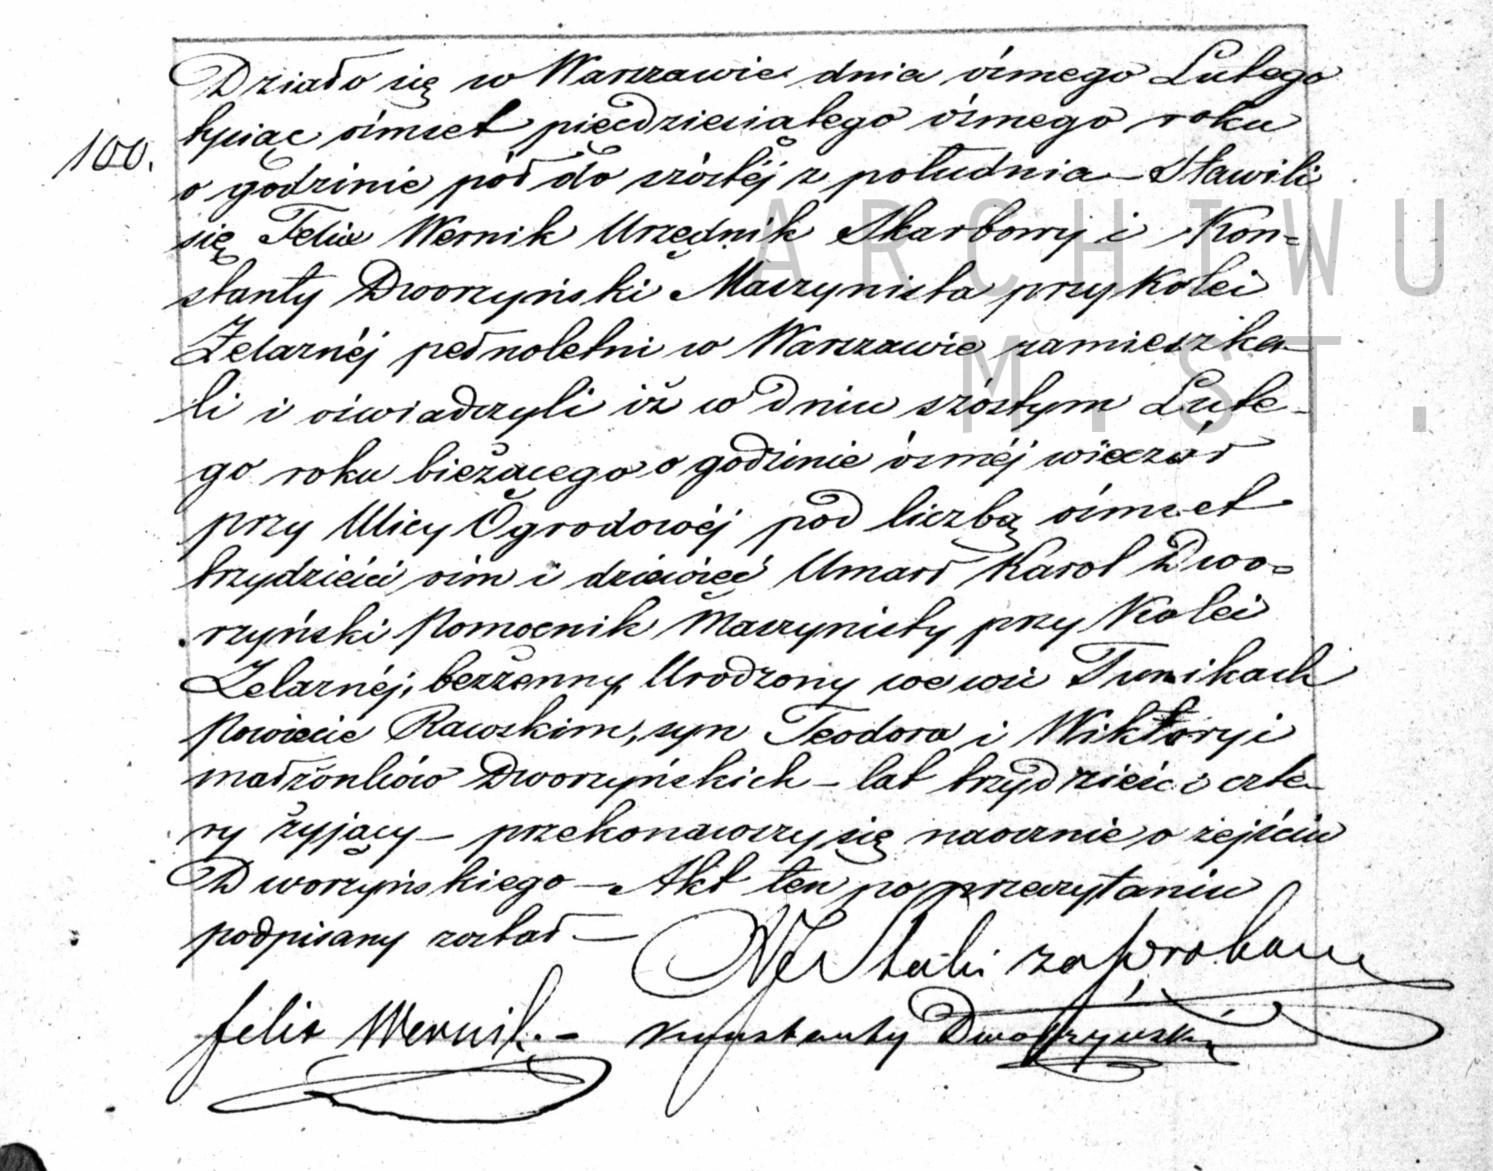 Działo się w Warszawie dnia ósmego Lutego
100.
tysiąc ośmset pięćdziesiątego ósmego roku
o godzinie pół do szóstéj z południa – Stawili
się Felix Wernik Urzędnik Skarbowy i Kon=
stanty Dworzyński Maszynista przy Kolei
Żelaznéj pełnoletni w Warszawie zamieszka-
li i oświadczyli iż w dniu szóstym Lute-
go roku bieżącego o godzinie ósméj wieczór
przy Ulicy Ogrodowéj pod liczbą ośmset
trzydzieści ośm i dziewięć Umarł Karol Dwo=
rzyński Pomocnik Maszynisty przy Kolei
Żelaznéj, bezżenny, Urodzony we wsi
Powiecie Rawskim, syn Teodora i Wiktoryi
małżonków Dworzyńskich – lat trzydzieści czte-
ry żyjący – przekonawszy się naocznie o zejściu
Dworzyńskiego – Akt ten po przeczytaniu
podpisany został –
Felix Wernik. – Konstanty Dworzyński
ARCHIWU
M.ST.